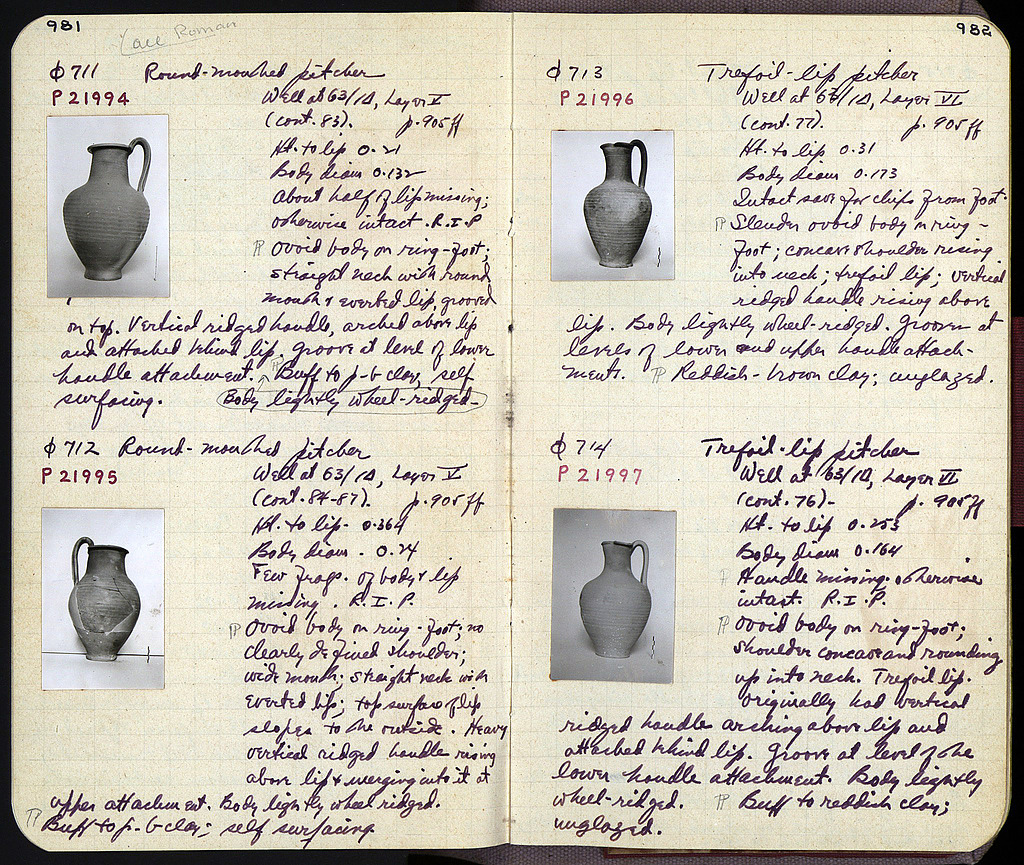 981
Late Roman
φ711 Round-mouthed pitcher
P 21994
Well at 63/ΙΔ, Layer V
(cont. 83). p. 905 ff
Ht. to lip 0.21
Body diam 0.132
About half of lip missing;
otherwise intact. R.I.P
₱ Ovoid body on ring-foot;
straight neck with round
mouth & everted lip, grooved
on top. Vertical ridged handle, arched above lip
and attached behind lip. Groove at level of lower
handle attachment. ₱ Buff to p-b clay, self
surfacing. Body lightly wheel-ridged-
φ712 Round-mouthed pitcher
P 21995
Well at 63/ΙΔ, Layer V
(cont. 84-87). p. 905 ff
Ht. to lip - 0.364
Body diam. - 0.24
Few frags. of body & lip
missing. R.I.P.
₱ Ovoid body on ring-foot; no
clearly defined shoulder;
wide mouth; straight neck with
everted lip; top surface of lip
slopes to the outside. Heavy
vertical ridged handle rising
above lip & merging into it at
upper attachment. Body lightly wheel ridged.
₱ Buff to p.-b clay; self surfacing
982
φ713 Trefoil-lip pitcher
P 21996
Well at 63/ΙΔ, Layer VI
(cont. 77). p. 905 ff
Ht. to lip 0.31
Body diam 0.173
Intact save for chips from foot.
₱ Slender ovoid body on ring-
foot; concave shoulder rising
into neck; trefoil lip; vertical
ridged handle rising above
lip. Body lightly wheel-ridged. Grooves at
levels of lower and upper handle attach-
ments. ₱ Reddish-brown clay; unglazed.
φ714 Trefoil-lip pitcher
P 21997
Well at 63/ΙΔ, Layer VI
(cont. 76)- p. 905 ff
Ht. to lip 0.253
Body diam 0.164
₱ Handle missing. otherwise
intact. R.I.P.
₱ Ovoid body on ring-foot;
shoulder concave and rounding
up into neck. Trefoil lip.
Originally had vertical
ridged handle arching above lip and
attached behind lip. Groove at level of the
lower handle attachment. Body lightly
wheel-ridged. ₱ Buff to reddish clay;
unglazed.